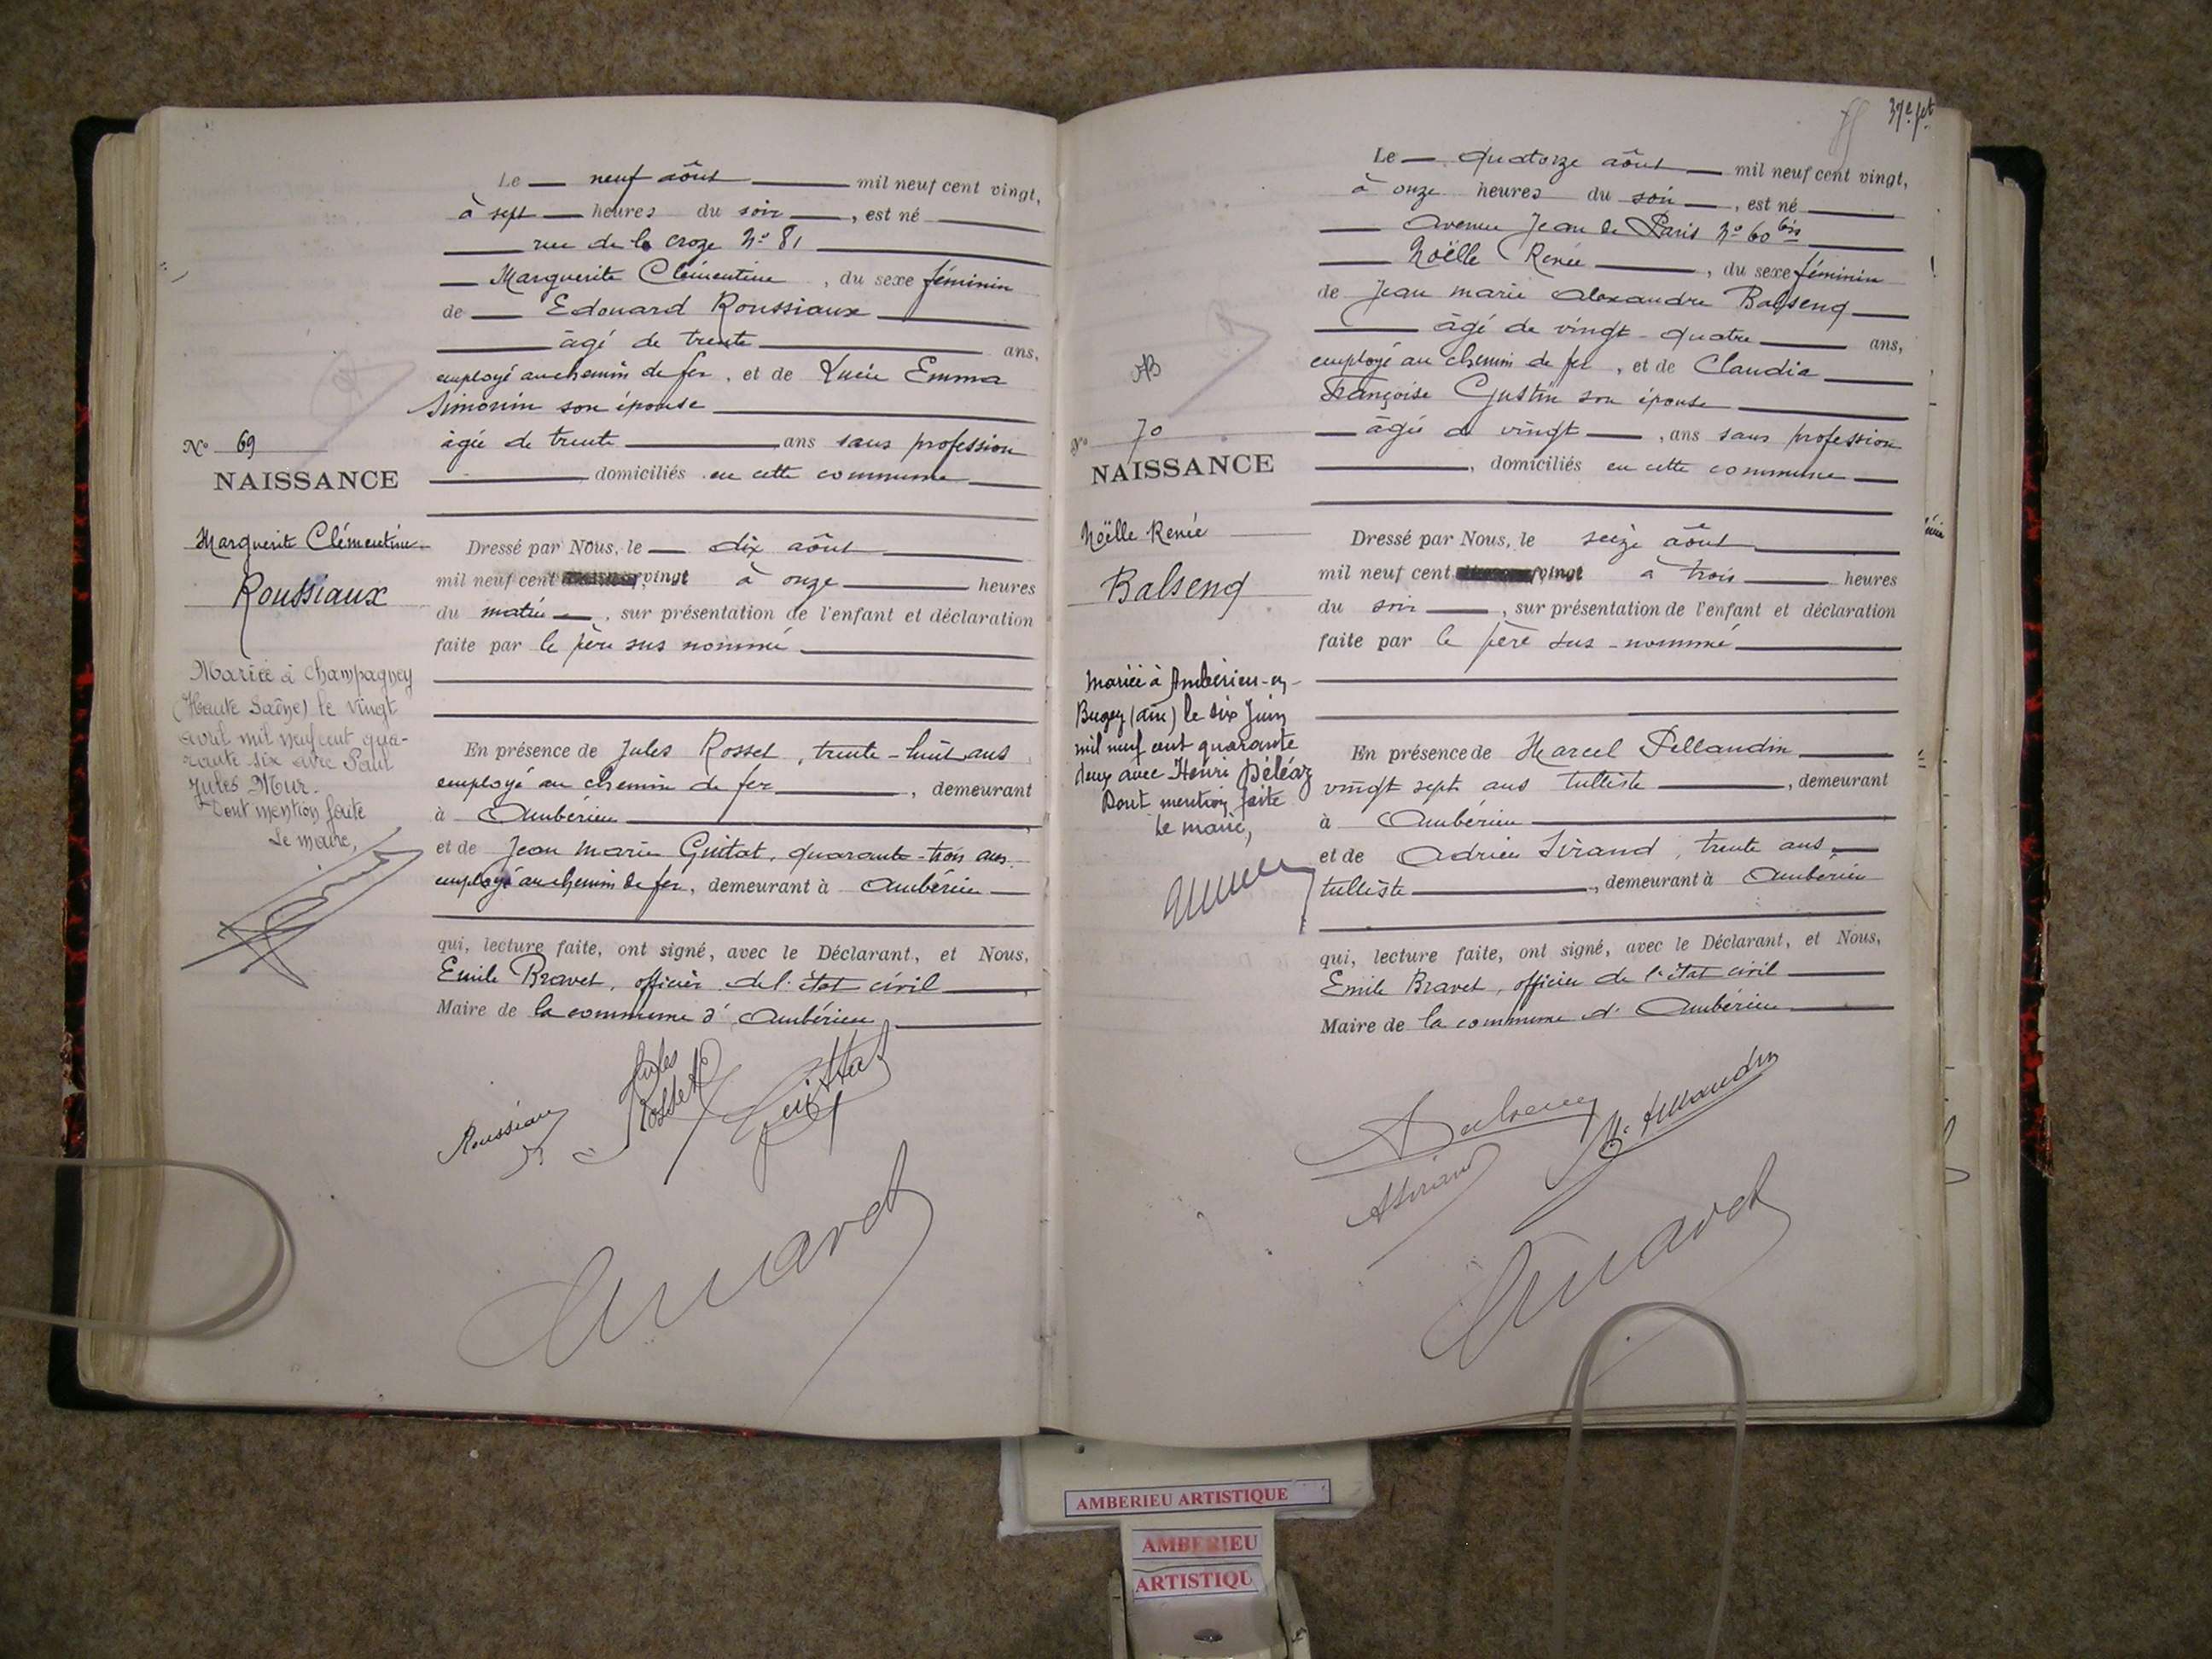 Le neuf août mil neuf cent vingt,
à sept heures du soir, est né
rue de la croze N° 81
Marguerite Clémentine, du sexe féminin
de Edouard Roussiaux
âgé de trente ans,
employé au chemin de fer, et de Lucie Emma
Simonin son épouse
âgée de trente ans sans profession
domiciliés en cette commune
N° 69
NAISSANCE
Marguerite Clémentine
Roussiaux
Mariée à Champagney
(Haute Saône) le vingt
avril mil neuf cent qua-
rante six avec Paul
Jules Mur.
Dont mention faite
Le maire,
Dressé par Nous, le dix août
mil neuf cent vingt à onze heures
du matin, sur présentation de l'enfant et déclaration
faite par le père sus nommé
En présence de Jules Rosset, trente-huit ans
employé au chemin de fer, demeurant
à Ambérieu
et de Jean Marie Guitat, quarante-trois ans
employé au chemin de fer, demeurant à Ambérieu
qui, lecture faite, ont signé, avec le Déclarant, et Nous,
Emile Bravet, officier de l'état civil
Maire de la commune d'Ambérieu
Roussiaux
Jules
Rosset
Guittat
37e ft
Le quatorze août mil neuf cent vingt,
à onze heures du soir, est né
Avenue Jean de Paris N° 60 bis
Noëlle Renée, du sexe féminin
de Jean marie Alexandre Balseng
âgé de vingt-quatre ans,
employé au chemin de fer, et de Claudia
Françoise Gustin son épouse
âgée de vingt, ans sans profession
domiciliés en cette commune
N° 70
NAISSANCE
Noëlle Renée
Balseng
mariée à Ambérieu-en-
Bugey (ain) le six Juin
mil neuf cent quarante
deux avec Henri Déléaz
Dont mention faite
Le maire,
Dressé par Nous, le seize août
mil neuf cent vingt à trois heures
du soir, sur présentation de l'enfant et déclaration
faite par le père sus-nommé
En présence de Marcel Pellaudin
vingt sept ans tulliste, demeurant
à Ambérieu
et de Adrien Sirand, trente ans
tulliste, demeurant à Ambérieu
qui, lecture faite, ont signé, avec le Déclarant, et Nous,
Emile Bravet, officier de l'état civil
Maire de la commune d'Ambérieu
ABalseng
ASirand
AMBERIEU ARTISTIQUE
AMBERIEU
ARTISTIQU